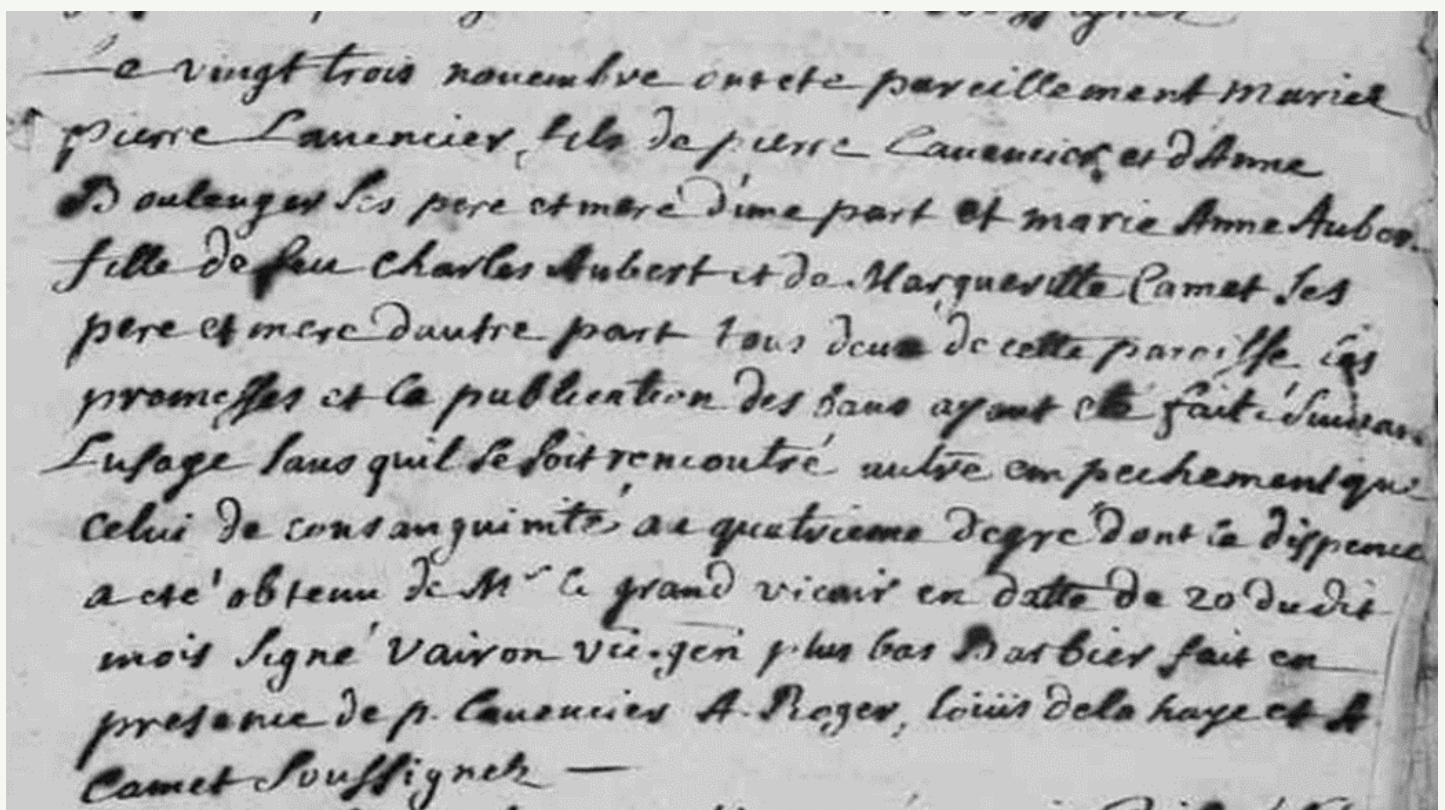 Le vingt trois nouembre ont eté pareillement mariez
pierre Lauencier, fils de pierre Lauencier, et d'Anne
Boulenger ses pere et mere d'une part et marie Anne Auber
fille de feu Charles Aubert et de Margueritte Camet ses
pere et mere dautre part tous deux de cette paroisse les
promesses et la publication des bans ayant eté fait suiuan
Lusage sans quil se soit rencontré autre empechement que
celui de consanguinité au quatrieme degré dont la dispence
a eté obtenu de Mr le grand vicair en datte de 20 dudit
mois signé Vairon vic.gen plus bas Barbier fait en
presence de p. Lauencier A. Roger, loüis dela haye et A
Camet soussignez